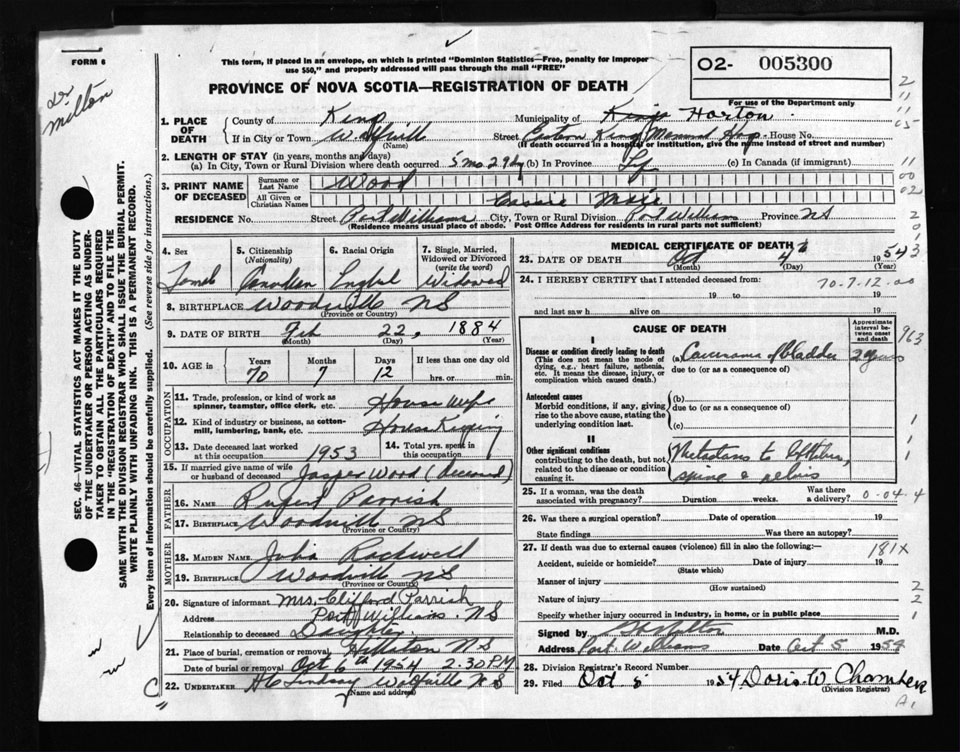 FORM 6
This form, if placed in an envelope, on which is printed "Dominion Statistics—Free, penalty for improper
use $50," and properly addressed will pass through the mail "FREE"
PROVINCE OF NOVA SCOTIA—REGISTRATION OF DEATH
O2- 005300
For use of the Department only
Dr
Millon
1. PLACE OF DEATH { County of King Municipality of Kings Horton
If in City or Town Wolfville (Name) Street Eastern Kings Memorial Hosp House No.
(If death occurred in a hospital or institution, give the name instead of street and number)
2. LENGTH OF STAY (in years, months and days)
(a) In City, Town or Rural Division where death occurred 5 mo 29 dy (b) In Province Lf (c) In Canada (if immigrant)
3. PRINT NAME OF DECEASED
Surname or Last Name Wood
All Given or Christian Names Cassie
RESIDENCE No. Street Port Williams City, Town or Rural Division Port Williams Province NS
(Residence means usual place of abode. Post Office Address for residents in rural parts not sufficient)
4. Sex 5. Citizenship (Nationality) 6. Racial Origin 7. Single, Married, Widowed or Divorced (write the word)
Canadian English Widowed
8. BIRTHPLACE Woodville NS
(Province or Country)
9. DATE OF BIRTH Feb 22, 1884
(Month) (Day) (Year)
10. AGE in Years Months Days If less than one day old
70 7 12 hrs. or min.
OCCUPATION
11. Trade, profession, or kind of work as spinner, teamster, office clerk, etc. House Wife
12. Kind of industry or business, as cotton-mill, lumbering, bank, etc. House Keeping
13. Date deceased last worked at this occupation 1953 14. Total yrs. spent in this occupation
15. If married give name of wife or husband of deceased Jasper Wood (deceased)
FATHER
16. Name Rupert Parrish
17. Birthplace Woodville NS
(Province or Country)
MOTHER
18. Maiden Name Julia Rockwell
19. Birthplace Woodville NS
(Province or Country)
20. Signature of informant Mrs. Clifford Parrish
Address Port Williams. NS
Relationship to deceased Daughter
21. Place of burial, cremation or removal NS
Date of burial or removal Oct 6th 1954 2.30 PM
22. UNDERTAKER Lindsay Wolfville NS
(Name and address)
MEDICAL CERTIFICATE OF DEATH
23. DATE OF DEATH Oct 4th 1954
(Month) (Day) (Year)
24. I HEREBY CERTIFY that I attended deceased from:
70-7-12-00
19 to 19
and last saw h alive on 19
CAUSE OF DEATH
Approximate interval between onset and death
I
Disease or condition directly leading to death (a) Carcinoma of bladder 2 yrs
(This does not mean the mode of dying, e.g., heart failure, asthenia, etc. It means the disease, injury, or complication which caused death.)
due to (or as a consequence of)
Antecedent causes
Morbid conditions, if any, giving rise to the above cause, stating the underlying condition last.
(b)
due to (or as a consequence of)
(c)
II
Other significant conditions
contributing to the death, but not related to the disease or condition causing it.
Metastases to
spine & pelvis
25. If a woman, was the death associated with pregnancy? Duration weeks. Was there a delivery? 0-04-4
26. Was there a surgical operation? Date of operation 19
State findings Was there an autopsy?
27. If death was due to external causes (violence) fill in also the following:— 181X
Accident, suicide or homicide? Date of injury 19
(State which)
Manner of injury
(How sustained)
Nature of injury
Specify whether injury occurred in industry, in home, or in public place
Signed by M.D.
Address Port Williams Date Oct 5 1954
28. Division Registrar's Record Number
29. Filed Oct 5 1954 Doris W. Chambers
(Division Registrar)
SEC. 46—VITAL STATISTICS ACT MAKES IT THE DUTY
OF THE UNDERTAKER OR PERSON ACTING AS UNDER-
TAKER TO OBTAIN ALL THE PARTICULARS REQUIRED
IN THE "REGISTRATION OF DEATH" AND TO FILE THE
SAME WITH THE DIVISION REGISTRAR WHO SHALL ISSUE THE BURIAL PERMIT.
WRITE PLAINLY WITH UNFADING INK. THIS IS A PERMANENT RECORD.
Every item of information should be carefully supplied. (See reverse side for instructions.)